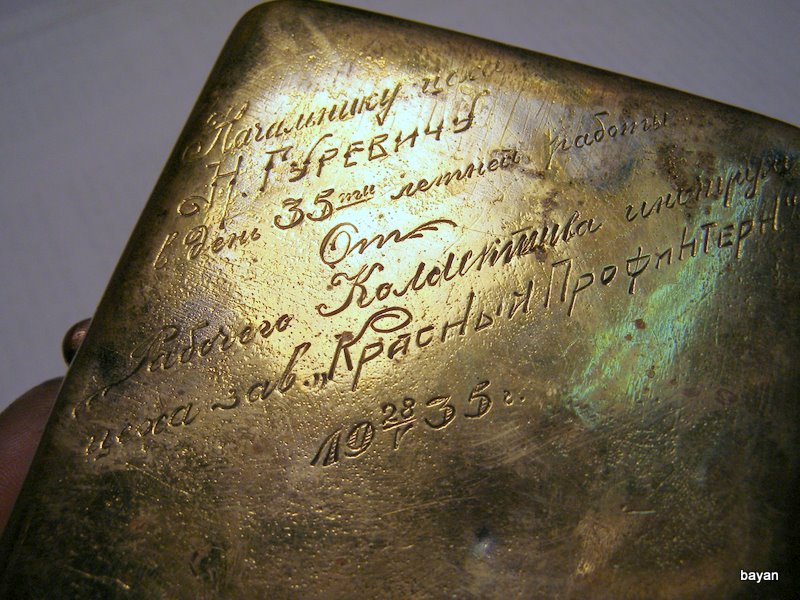 Начальнику цеха
Н. ГУРЕВИЧУ
в день 35ти летней работы
От
Рабочего Коллектива инструм
цеха зав. „КРАСНЫЙ ПРОФИНТЕРН"
19 28/V 35 г.
bayan